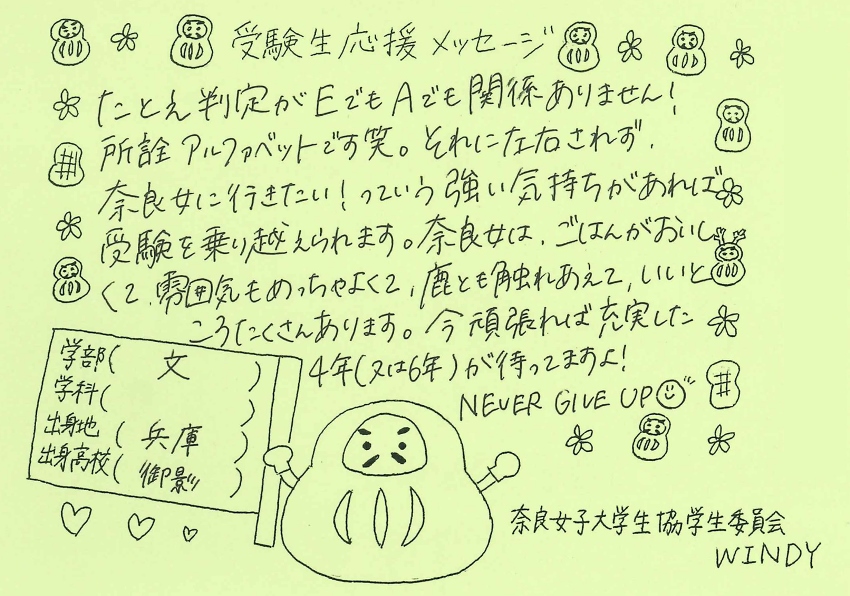 受験生応援メッセージ
たとえ判定がEでもAでも関係ありません!
所詮アルファベットです笑。それに左右されず、
奈良女に行きたい!っていう強い気持ちがあれば
受験を乗り越えられます。奈良女は、ごはんがおいし
くて、雰囲気もめっちゃよくて、鹿とも触れあえて、いいと
ころたくさんあります。今頑張れば充実した
4年(又は6年)が待ってますよ!
NEVER GIVE UP
学部( 文 )
学科( )
出身地( 兵庫 )
出身高校( 御影 )
奈良女子大学生協学生委員会
WINDY